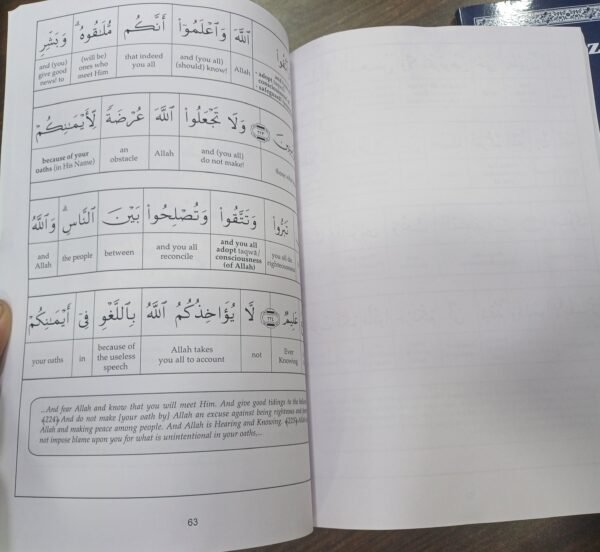 ٱللَّهَ وَٱعْلَمُوٓا۟ أَنَّكُم مُّلَـٰقُوهُ ۗ وَبَشِّرِ
and (you) give good news! to | (will be) ones who meet Him | that indeed you all | and (you all) (should) know! | Allah
وَلَا تَجْعَلُوا۟ ٱللَّهَ عُرْضَةً لِّأَيْمَـٰنِكُمْ
because of your oaths (in His Name) | an obstacle | Allah | and (you all) do not make!
تَبَرُّوا۟ وَتَتَّقُوا۟ وَتُصْلِحُوا۟ بَيْنَ ٱلنَّاسِ ۗ وَٱللَّهُ
and Allah | the people | between | and you all reconcile | and you all adopt taqwā/ consciousness (of Allah) | you all do righteousness
عَلِيمٌ ﴿٢٢٤﴾ لَّا يُؤَاخِذُكُمُ ٱللَّهُ بِٱللَّغْوِ فِىٓ أَيْمَـٰنِكُمْ
your oaths | in | because of the useless speech | Allah takes you all to account | not | Ever Knowing
...And fear Allah and know that you will meet Him. And give good tidings to the
﴾224﴿ And do not make [your oath by] Allah an excuse against being righteous and
Allah and making peace among people. And Allah is Hearing and Knowing. ﴾225﴿ Allah
not impose blame upon you for what is unintentional in your oaths,...
63